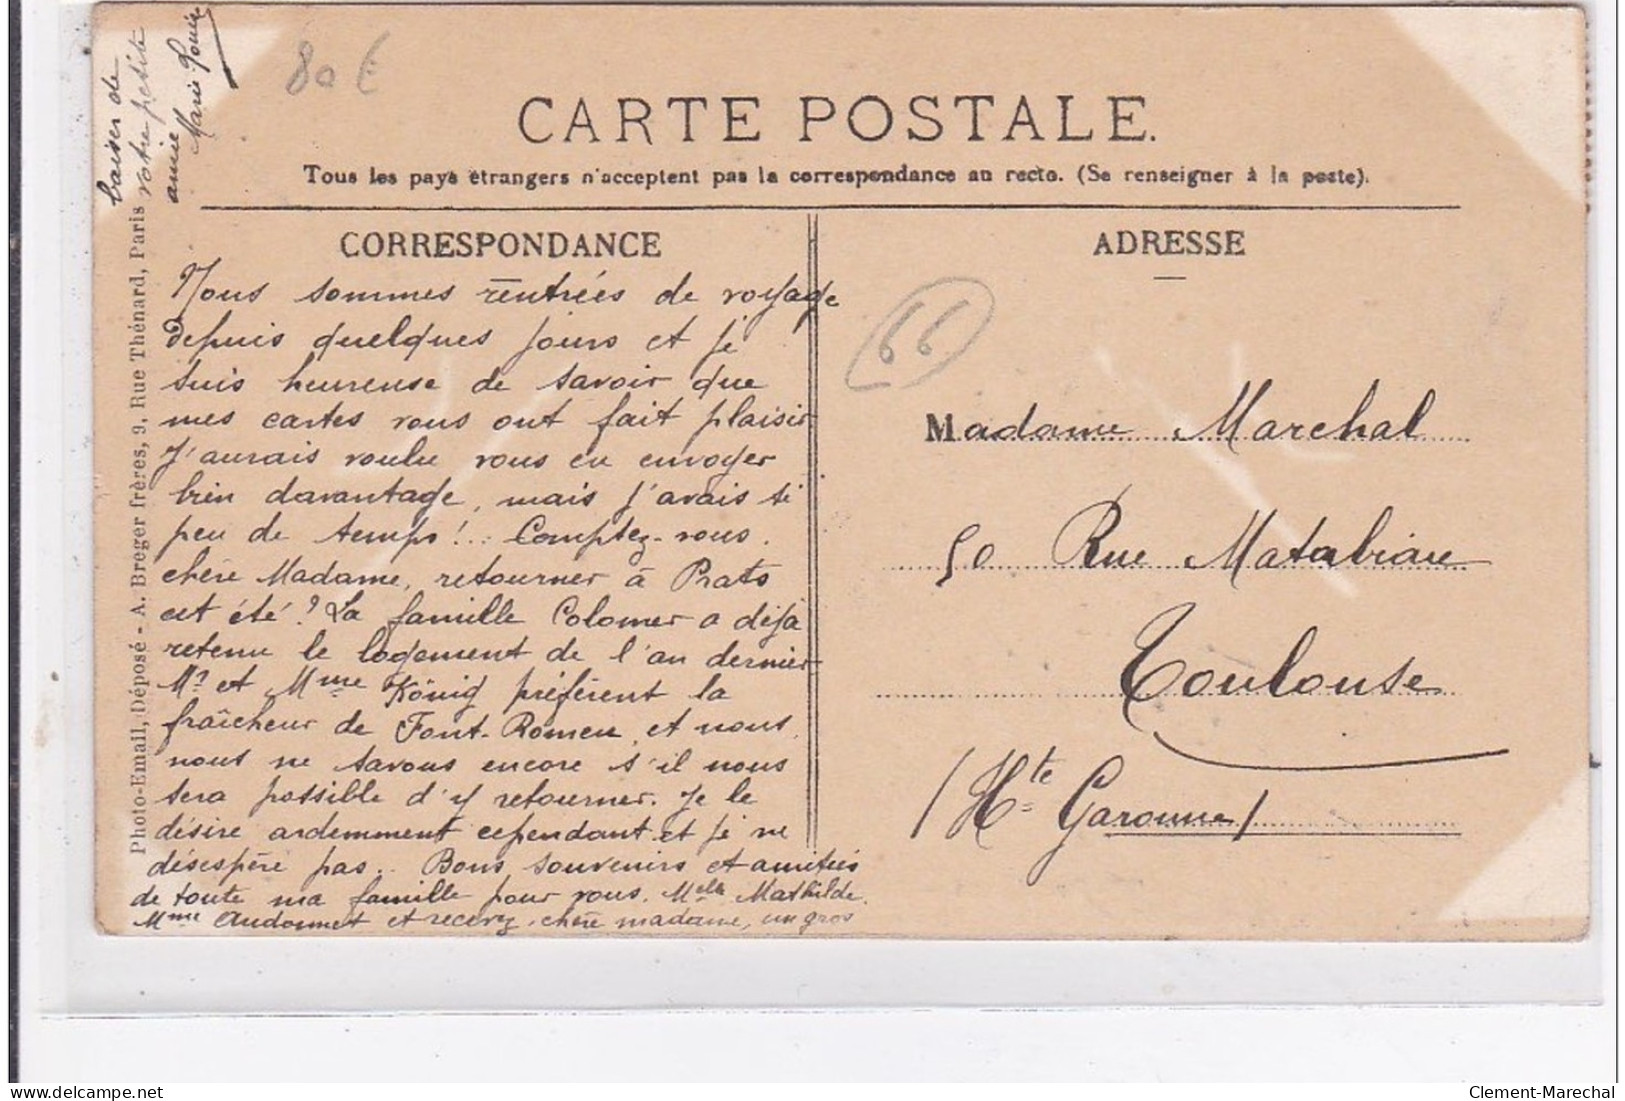 80 €
CARTE POSTALE.
Tous les pays étrangers n'acceptent pas la correspondance au recto. (Se renseigner à la poste).
CORRESPONDANCE
Nous sommes rentrées de voyage
depuis quelques jours et je
suis heureuse de savoir que
mes cartes vous ont fait plaisir
J'aurais voulu vous en envoyer
bien davantage, mais j'avais si
peu de temps!.. Comptez-vous,
chère Madame, retourner à Prats
cet été? La famille Colomer a déjà
retenu le logement de l'an dernier
Mr et Mme König préfèrent la
fraîcheur de Font-Romeu, et nous,
nous ne savons encore s'il nous
sera possible d'y retourner. Je le
désire ardemment cependant et je ne
désespère pas.. Bons souvenirs et amitiés
de toute ma famille pour vous. Melle Mathilde.
Mme Audonnet et recevez, chère madame, un gros
baiser de
votre petite
amie
Marie Louise
Photo-Email, Déposé - A. Breger frères, 9, Rue Thénard, Paris
ADRESSE
66
Madame Marchal
50 Rue Matabiau
Toulouse
(Hte Garonne)
delcampe.net
Clement-Marechal